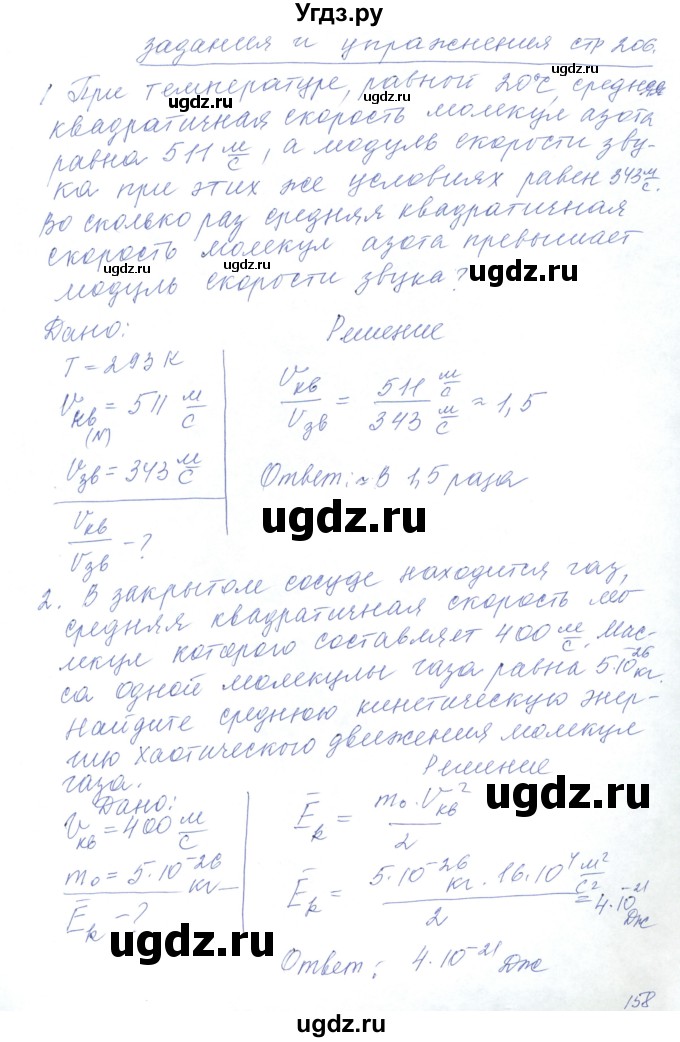 Угдз.ру
задания и упражнения стр 206.
1 При температуре, равной 20°C, средняя
квадратичная скорость молекул азота
равна 511 м/с, а модуль скорости зву-
ка при этих же условиях равен 343 м/с.
Во сколько раз средняя квадратичная
скорость молекул азота превышает
модуль скорости звука?
Дано: Решение
T = 293 К
Vкв (N) = 511 м/с
Vзв = 343 м/с
Vкв/Vзв - ?
Vкв/Vзв = 511 м/с / 343 м/с ≈ 1,5
Ответ: ≈ в 1,5 раза
2. В закрытом сосуде находится газ,
средняя квадратичная скорость мо
лекул которого составляет 400 м/с. Мас-
са одной молекулы газа равна 5·10⁻²⁶ кг.
Найдите среднюю кинетическую энер-
гию хаотического движения молекул
газа.
Дано: Решение
Vкв = 400 м/с
m₀ = 5·10⁻²⁶ кг
Ēk - ?
Ēk = m₀·Vкв²/2
Ēk = 5·10⁻²⁶ кг · 16·10⁴ м²/с² / 2 = 4·10⁻²¹ Дж
Ответ: 4·10⁻²¹ Дж
158
ugdz.ru
ugdz.ru
ugdz.ru
ugdz.ru
ugdz.ru
ugdz.ru
ugdz.ru
ugdz.ru
ugdz.ru